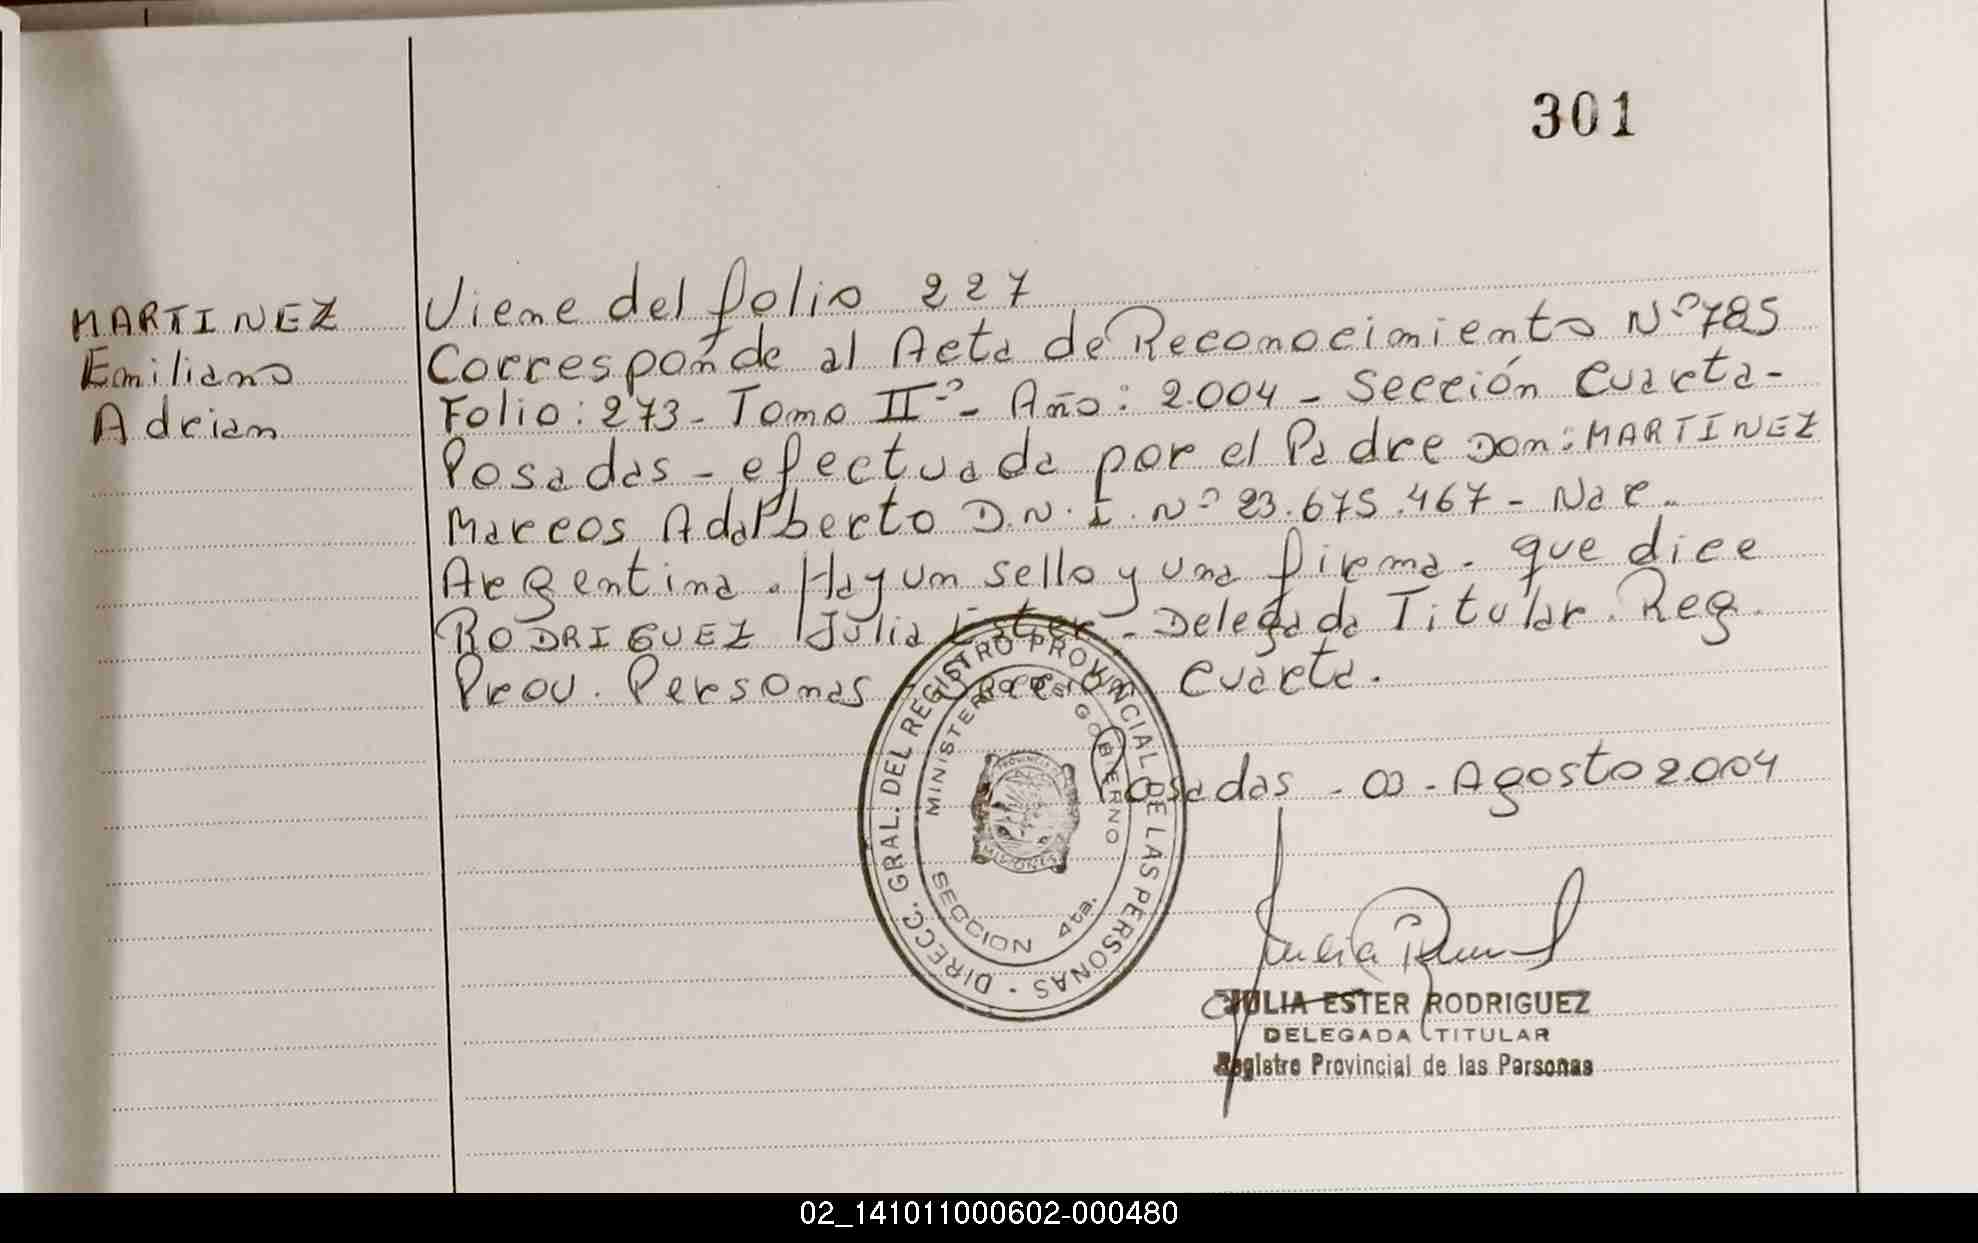 301
MARTINEZ
Emiliano
Adrian
Viene del folio 227
Corresponde al Acta de Reconocimiento Nº 785
Folio: 273 - Tomo IIº - Año: 2.004 - Sección Cuarta -
Posadas - efectuada por el Padre Don: MARTÍNEZ
Marcos Adalberto D.N.I. Nº 23.675.467 - Nac.
Argentina. Hay un sello y una firma. que dice
RODRIGUEZ Julia Ester - Delegada Titular. Reg.
Prov. Personas Sección Cuarta.
Posadas - 03 - Agosto 2004
DIRECC. GRAL. DEL REGISTRO PROVINCIAL DE LAS PERSONAS -
MINISTERIO DE GOBIERNO
PROVINCIA DE
MISIONES
SECCION 4ta.
JULIA ESTER RODRIGUEZ
DELEGADA TITULAR
Registro Provincial de las Personas
02_141011000602-000480